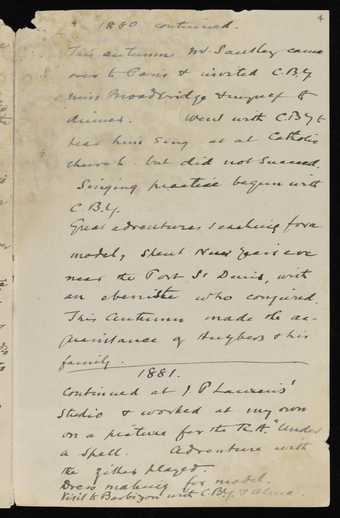 4
1880 continued.
This autumn Mr Santley came
over to Paris & invited C.B.Y
Miss Broadbridge & myself to
dinner. Went with C.B.Y to
hear him sing at a Catholic
church but did not succeed.
Singing practice begun with
C.B.Y.
Great adventures searching for a
model, spent New Years eve
near the Port St Denis, with
an ebeniste who conjured.
This Autumn made the ac-
quaintance of Huybers & his
family.
1881.
Continued at J. P Laurens'
Studio & worked at my own
on a picture for the R.A. "Under
a Spell. Adventure with
the zither played.
Dress making for model.
Visit to Barbizon with C.B.Y. &